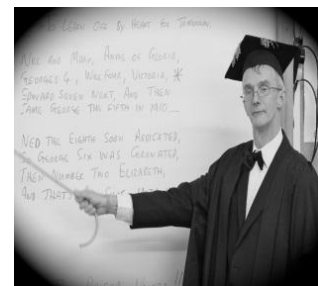 To Learn Off By Heart For Tomorrow.
Ned and Mary, Anne of Gloria,
Georges 4, Will Four, Victoria, *
Edward Seven Next, And Then
Came George The Fifth in 1910...
Ned The Eighth Soon Abdicated,
So George Six Was Coronated,
Then Number Two Elizabeth,
And That's